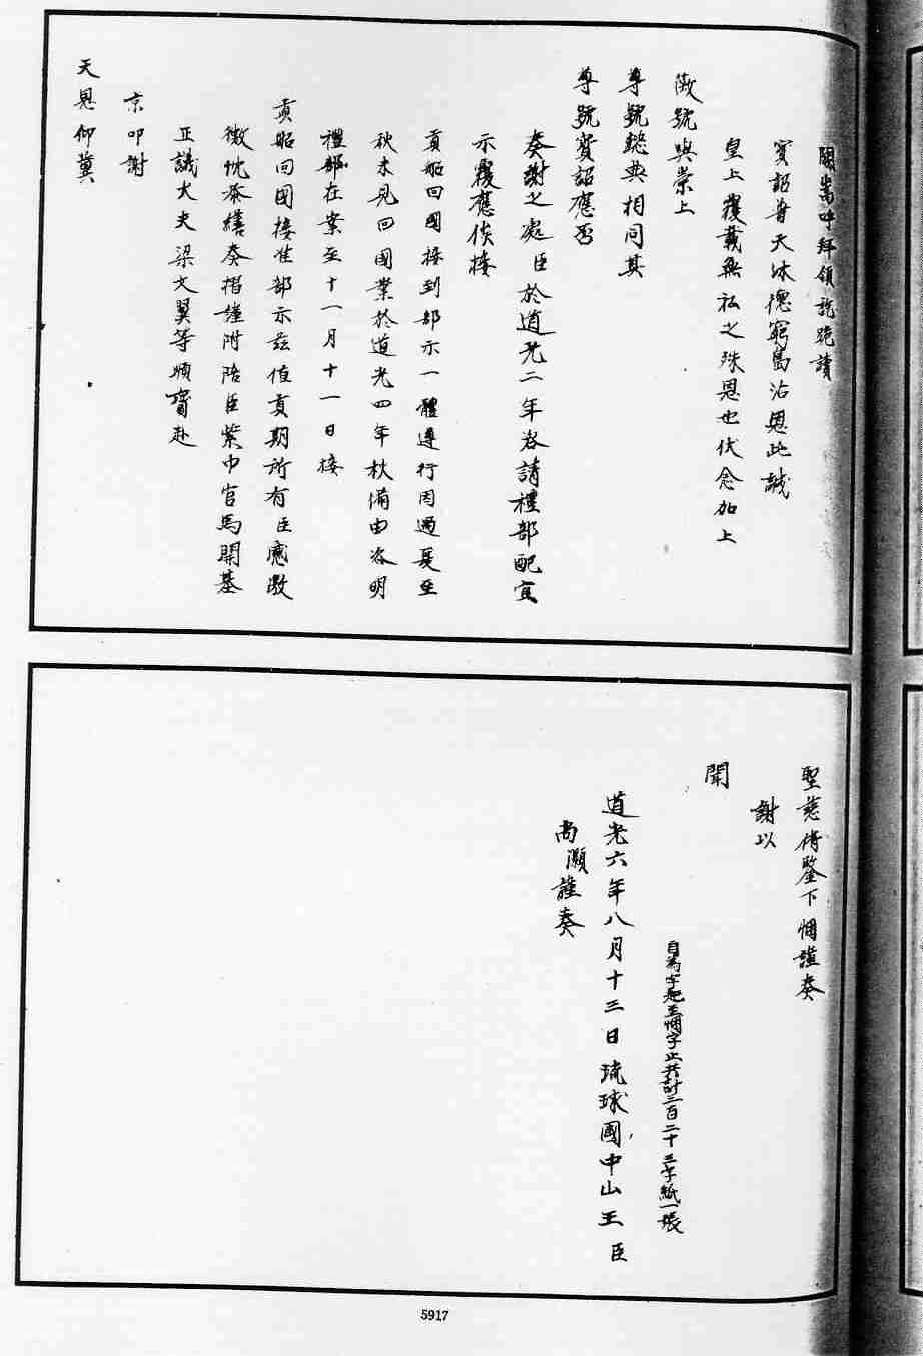 闕嵩呼拜領訖跪讀
寳詔普天沐德窮島沾恩此誠
皇上覆載無私之殊恩也伏念加上
徽號與崇上
尊號懿典相同其
尊號寳詔應否
奏謝之處臣於道光二年咨請禮部配宜
示覆應俟接
貢船回國接到部示一體遵行因過夏至
秋未見回國業於道光四年秋備由咨明
禮部在案至十一月十一日接
貢船回國接准部示茲值貢期所有臣感激
微忱恭繕奏摺謹附陪臣紫巾官馬開基
正議大夫梁文翼等順賫赴
京叩謝
天恩仰冀
聖慈俯鑒下悃謹奏
謝以
聞
自為字起至悃字止共計三百二十三字紙一張
道光六年八月十三日琉球國中山王臣
尚灝謹奏
5917